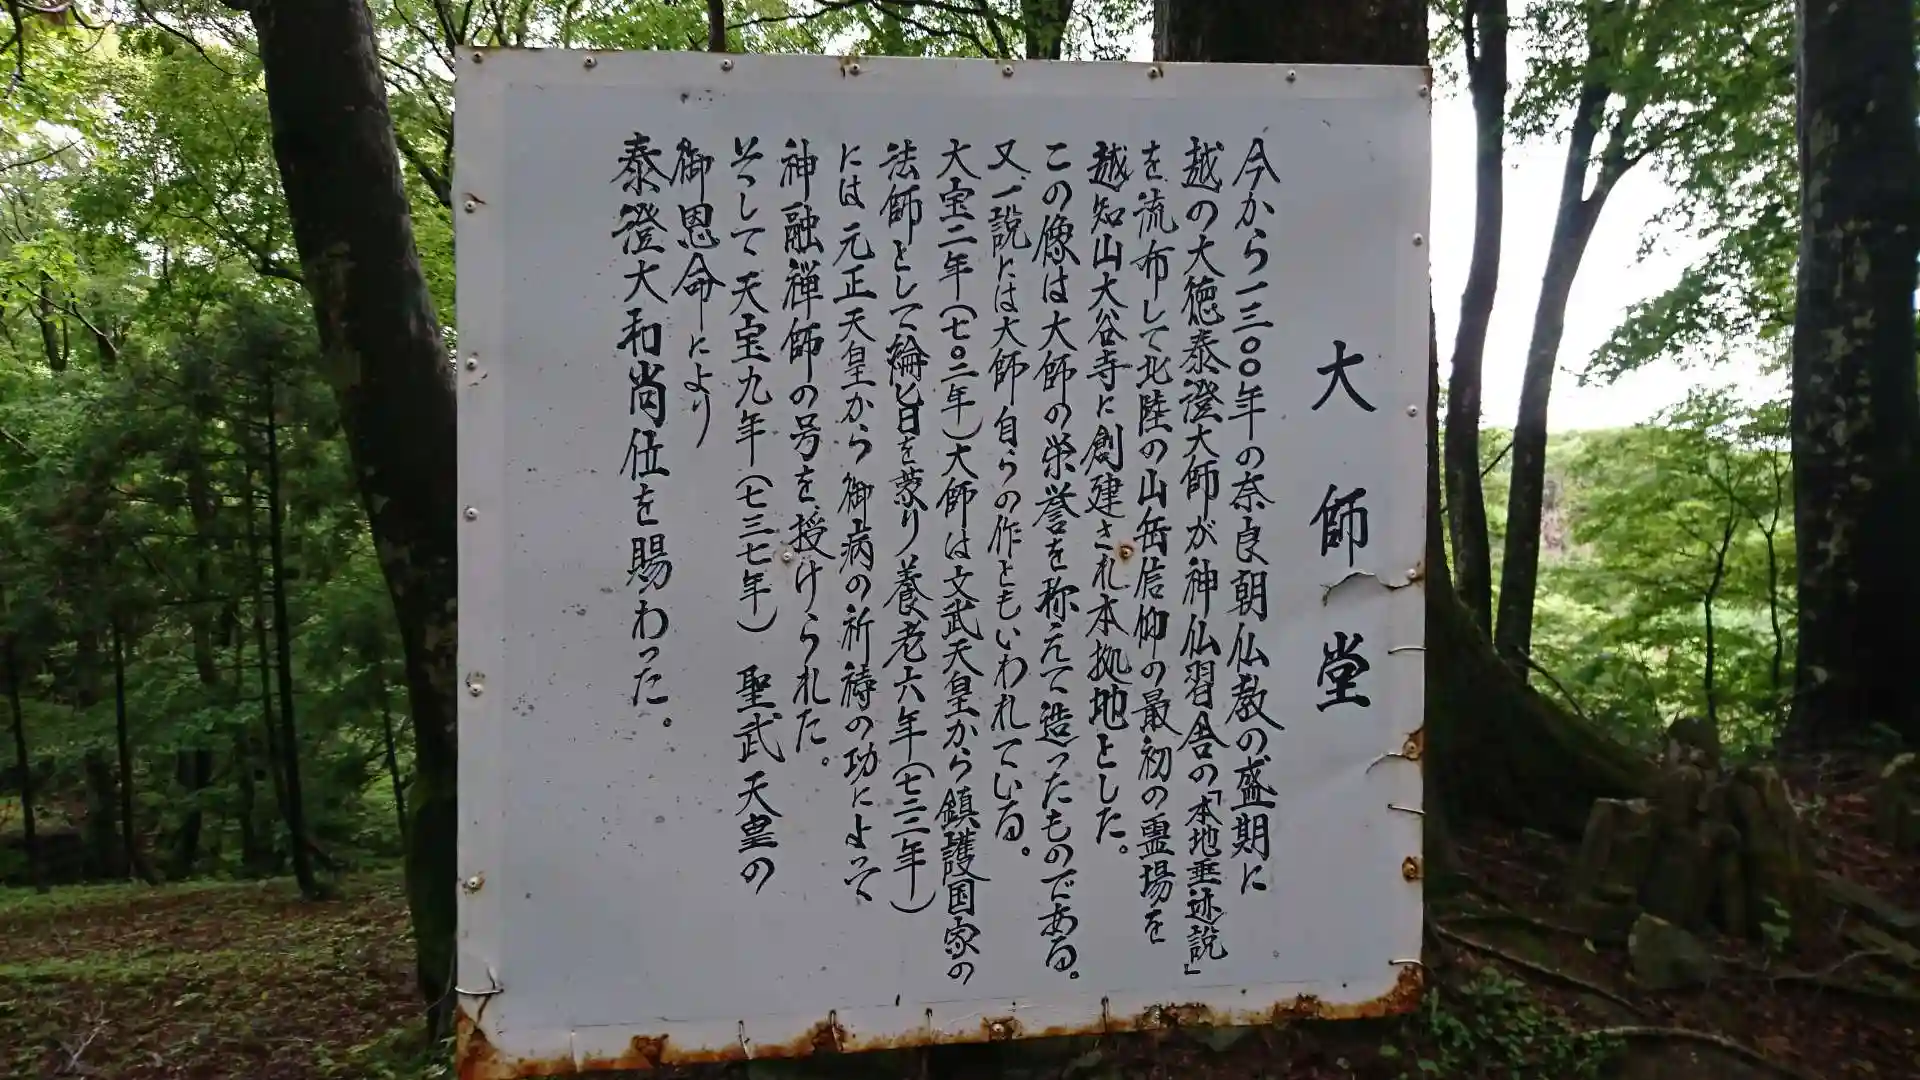 大師堂
今から一三〇〇年の奈良朝仏教の盛期に
越の大徳泰澄大師が神仏習合の「本地垂迹説」
を流布して北陸の山岳信仰の最初の霊場を
越知山大谷寺に創建され本拠地とした。
この像は大師の栄誉を称えて造ったものである。
又、一説には大師自らの作ともいわれている。
大宝二年(七〇二年)大師は文武天皇から鎮護国家の
法師として綸旨を蒙り養老六年(七二二年)
には元正天皇から御病の祈祷の功によって
神融禅師の号を授けられた。
そして天宝九年(七三七年) 聖武天皇の
御恩命により
泰澄大和尚位を賜わった。